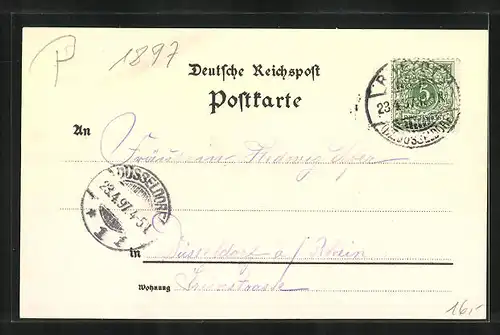 P 1897
Deutsche Reichspost
Postkarte
5
23.4.97
(BZ. DÜSSELDORF)
An
Fräulein Hedwig
DÜSSELDORF
23.4.97. 4-5N
* 1 i
in Düsseldorf a/Rhein
Wohnung
16,-